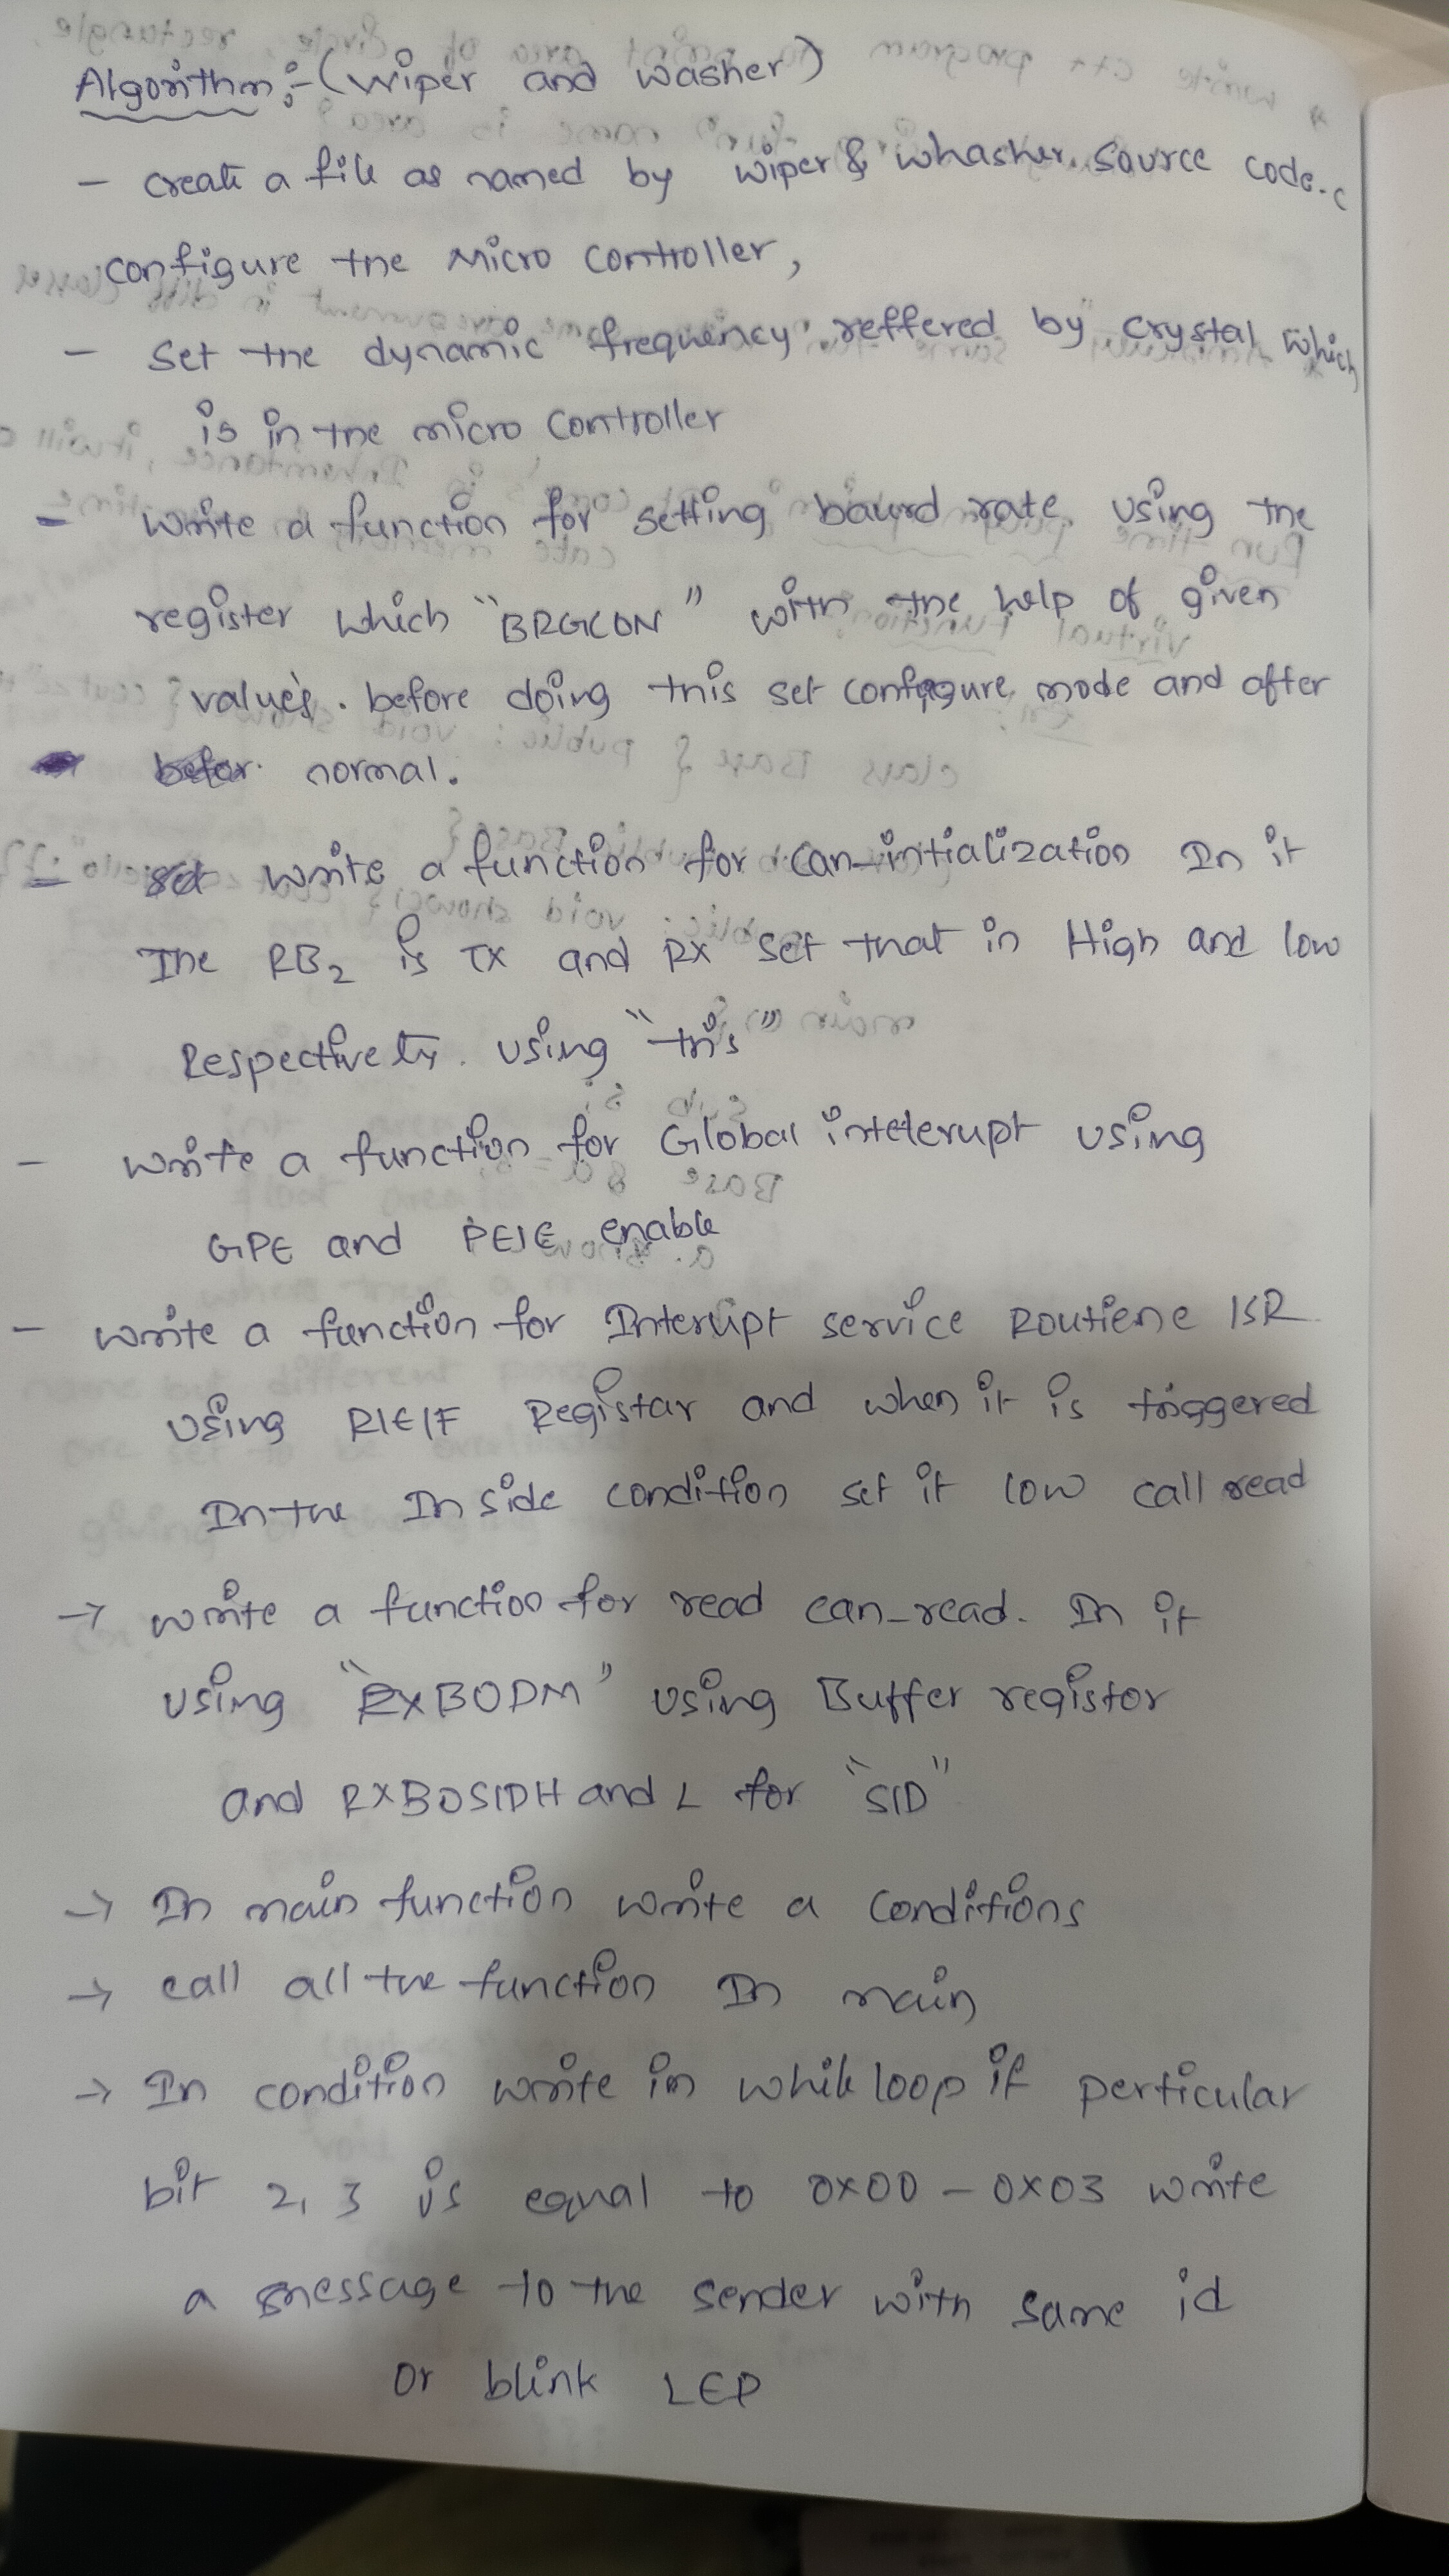 Algorithm :- (wiper and washer)
- create a file as named by wiper & whasher source code.c
configure the Micro controller,
- Set the dynamic frequency reffered by crystal which
is in the micro controller
- write a function for setting baurd rate using the
register which "BRGCON" with the help of given
values. before doing this set configure mode and after
normal.
- write a function for can-initialization In it
The RB2 is TX and RX set that in High and low
Respectively. using "tris"
- write a function for Global inteterupt using
GPE and PEIE enable
- write a function for Interupt service Routiene ISR
using RIEIF Registar and when it is triggered
In the In side condition set it low call read
→ write a function for read can_read. In it
using "RXB0DM" using Buffer registor
and RXB0SIDH and L for "SID"
→ In main function write a conditions
→ call all the function In main
→ In condition write in while loop if perticular
bit 2, 3 is equal to 0x00 - 0x03 write
a message to the sender with same id
or blink LED